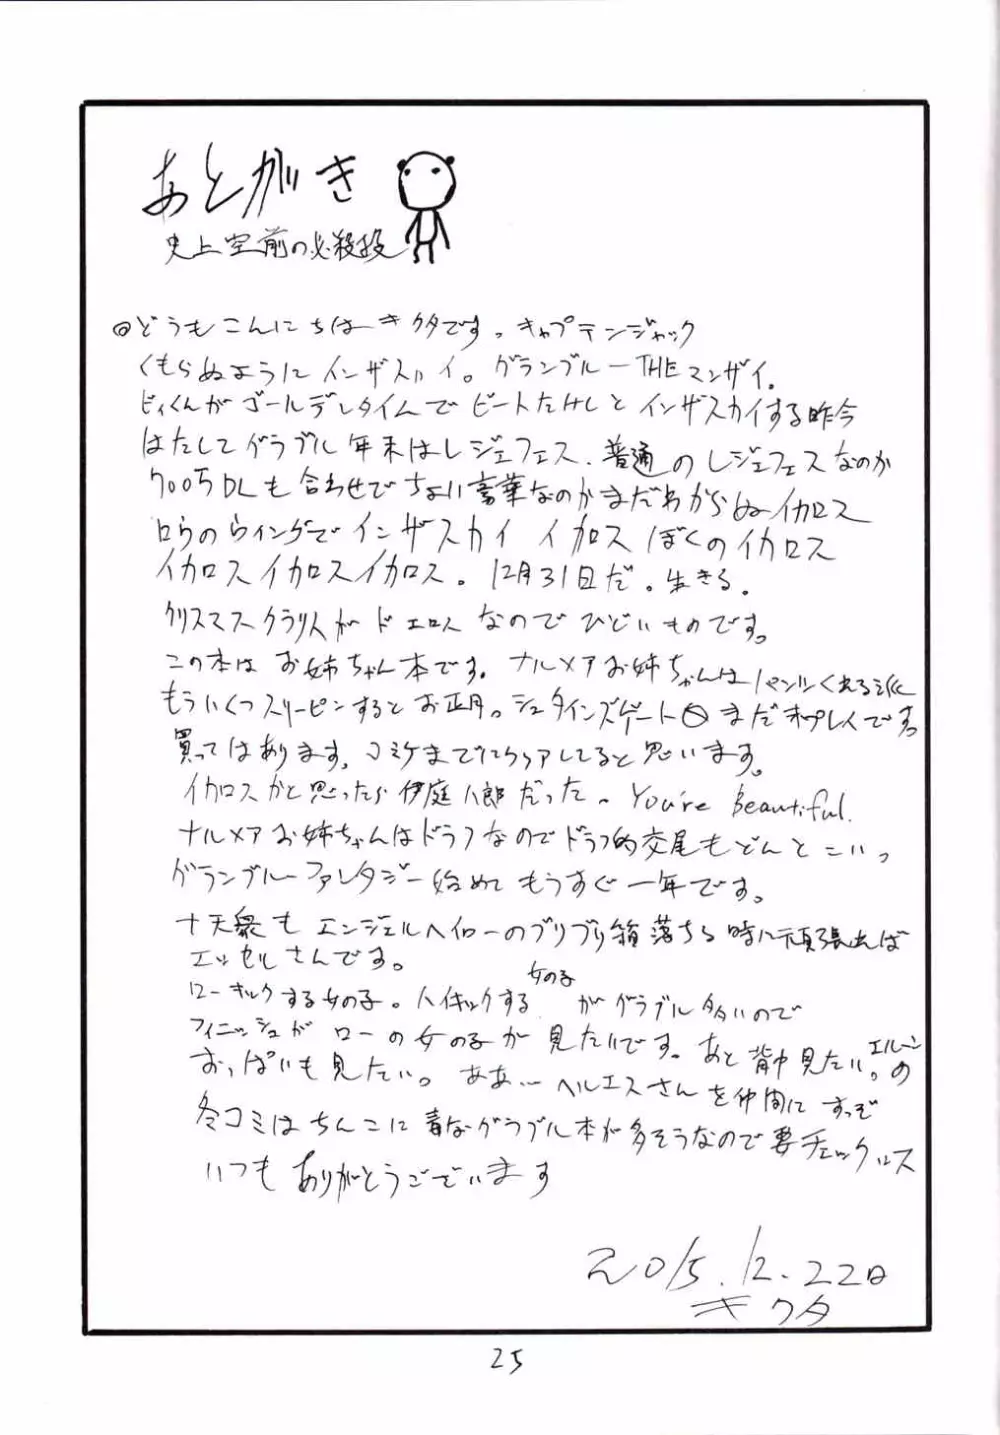 あとがき
史上空前の必殺技
◎どうもこんにちはキクタです。キャプテンジャック
くもらぬように インザスカイ。グランブルーTHEマンザイ。
ビィくんがゴールデンタイムでビートたけしとインザスカイする昨今
はたしてグラブル年末はレジェフェス、普通のレジェフェスなのか
700万DLも合わせでちょい豪華なのかまだわからぬイカロス
ロウのウィングでインザスカイ イカロス ぼくのイカロス
イカロスイカロスイカロス。12月31日だ。生きる。
クリスマスクラリスがドエロスなのでひどいものです。
この本はお姉ちゃん本です。ナルメアお姉ちゃんはパンツくれる派
もういくつスリーピンするとお正月。シュタインズゲート0まだ未プレイです。
買ってはあります。コミケまでにクリアしてると思います。
イカロスかと思ったら伊庭八郎だった。You're Beautiful.
ナルメアお姉ちゃんはドラフなのでドラフ的交尾もどんとこいっ
グランブルーファンタジー始めてもうすぐ一年です。
十天衆もエンジェルヘイローのブリブリ箱落ちる時に頑張れば
エッセルさんです。
ローキックする女の子。ハイキックする女の子がグラブル多いので
フィニッシュがローの女の子が見たいです。あと背中見たい。エルーンの
おっぱいも見たい。ああ…ヘルエスさんを仲間にすっぞ
冬コミはちんこに毒なグラブル本が多そうなので要チェックッス
いつもありがとうございます
2015.12.22日
キクタ
25